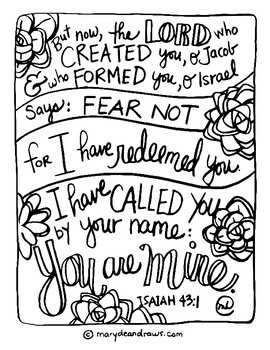 But now, the LORD who
CREATED you, O Jacob
& who FORMED you, O Israel
Says: FEAR NOT
for I have redeemed you.
I have CALLED you
by your name:
You are Mine.
ISAIAH 43:1
md
© marydeandraws.com